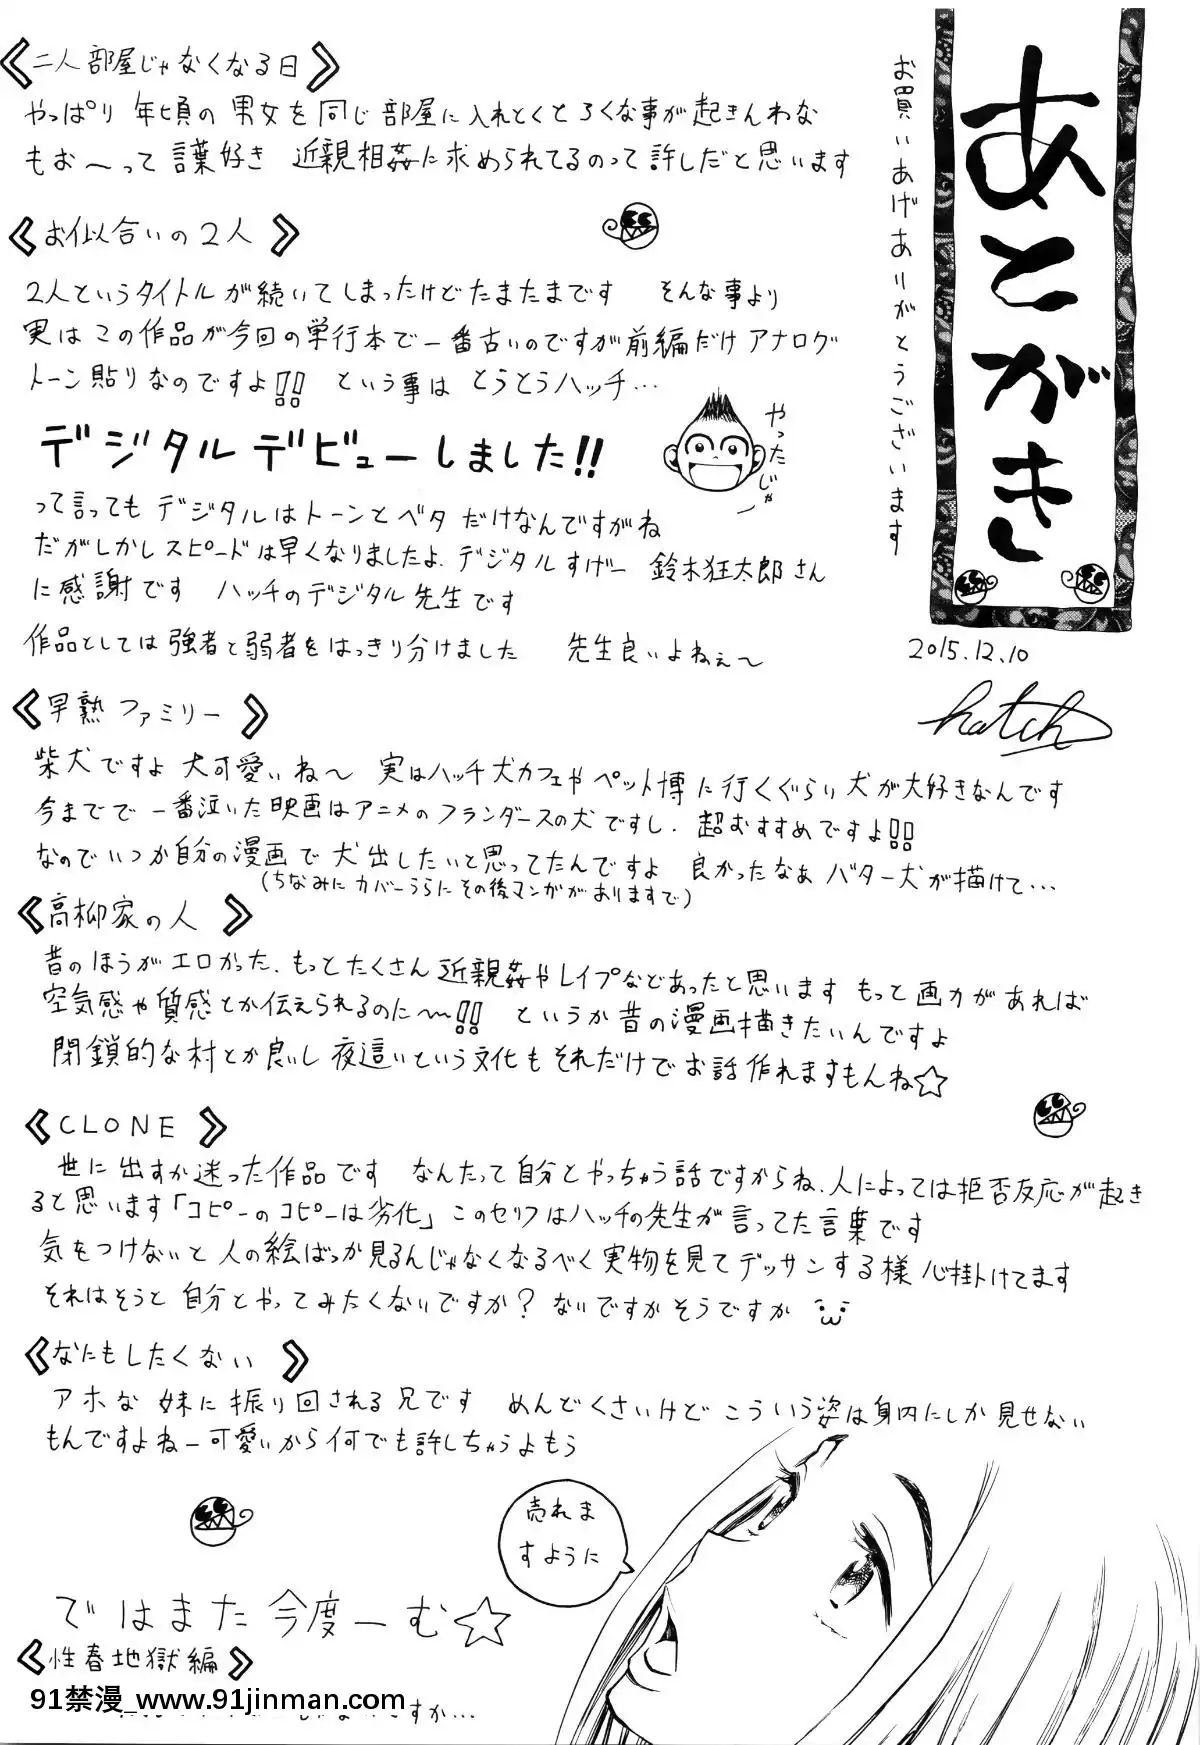 あとがき
お買いあげありがとうございます
2015.12.10
hatch
《二人部屋じゃなくなる日》
やっぱり年頃の男女を同じ部屋に入れとくとろくな事が起きんわな
もお〜って言葉好き 近親相姦に求められてるのって許しだと思います
《お似合いの2人》
2人というタイトルが続いてしまったけどたまたまです そんな事より
実はこの作品が今回の単行本で一番古いのですが前編だけアナログ
トーン貼りなのですよ!! という事はとうとうハッチ…
デジタルデビューしました!!
やったじゃー
って言ってもデジタルはトーンとベタだけなんですがね
だがしかしスピードは早くなりましたよ.デジタルすげー 鈴木狂太郎さん
に感謝です ハッチのデジタル先生です
作品としては強者と弱者をはっきり分けました 先生良いよねぇ〜
《早熟ファミリー》
柴犬ですよ 犬可愛いね〜 実はハッチ犬カフェやペット博に行くぐらい犬が大好きなんです
今までで一番泣いた映画はアニメのフランダースの犬ですし.超おすすめですよ!!
なのでいつか自分の漫画で犬出したいと思ってたんですよ 良かったなぁ バター犬が描けて…
(ちなみにカバーうらにその後マンガがありますで)
《高柳家の人》
昔のほうがエロかった.もっとたくさん近親姦やレイプなどあったと思います もっと画力があれば
空気感や質感とか伝えられるのに〜!! というか昔の漫画描きたいんですよ
閉鎖的な村とか良いし夜這いという文化もそれだけでお話作れますもんね☆
《CLONE》
世に出すか迷った作品です なんたって自分とやっちゃう話ですからね.人によっては拒否反応が起き
ると思います「コピーのコピーは劣化」このセリフはハッチの先生が言ってた言葉です
気をつけないと人の絵ばっか見るんじゃなくなるべく実物を見てデッサンする様心掛けてます
それはそうと自分とやってみたくないですか?ないですかそうですか
《なにもしたくない》
アホな妹に振り回される兄です めんどくさいけどこういう姿は身内にしか見せない
もんですよねー可愛いから何でも許しちゃうよもう
売れま
すように
ではまた今度ーむ☆
《性春地獄編》
91禁漫_www.91jinman.com
すか…